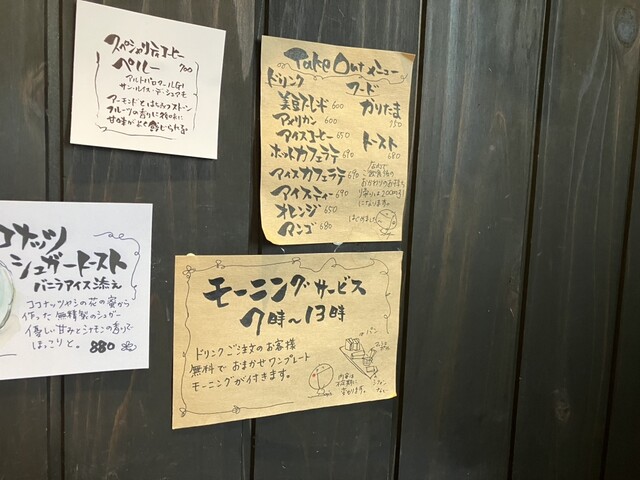 スペシャリティコーヒー
ペルー 700
アルトパロクールG1
サン・ルイス・デ・シュアモ
アーモンドと
フルーツの香りに
甘味が
Take Out メニュー
ドリンク
ブレンド 600
アメリカン 600
アイスコーヒー 650
ホットカフェラテ 690
アイスカフェラテ 690
アイスティー 690
オレンジ 650
マンゴ 680
フード
ガリたま
750
トースト
680
店内で
ご飲食後の
おかわりのお持ち
帰りは200円引
になります。
はじめました
ココナッツ
シュガートースト
バニラアイス添え
ココナッツヤシの花の蜜から
作った無精製のシュガー
優しい甘みとシナモンの香りで
ほっこりと。 880
モーニングサービス
7時〜13時
ドリンクご注文のお客様
無料でおまかせワンプレート
モーニングが付きます。
パン
内容は
変わります。